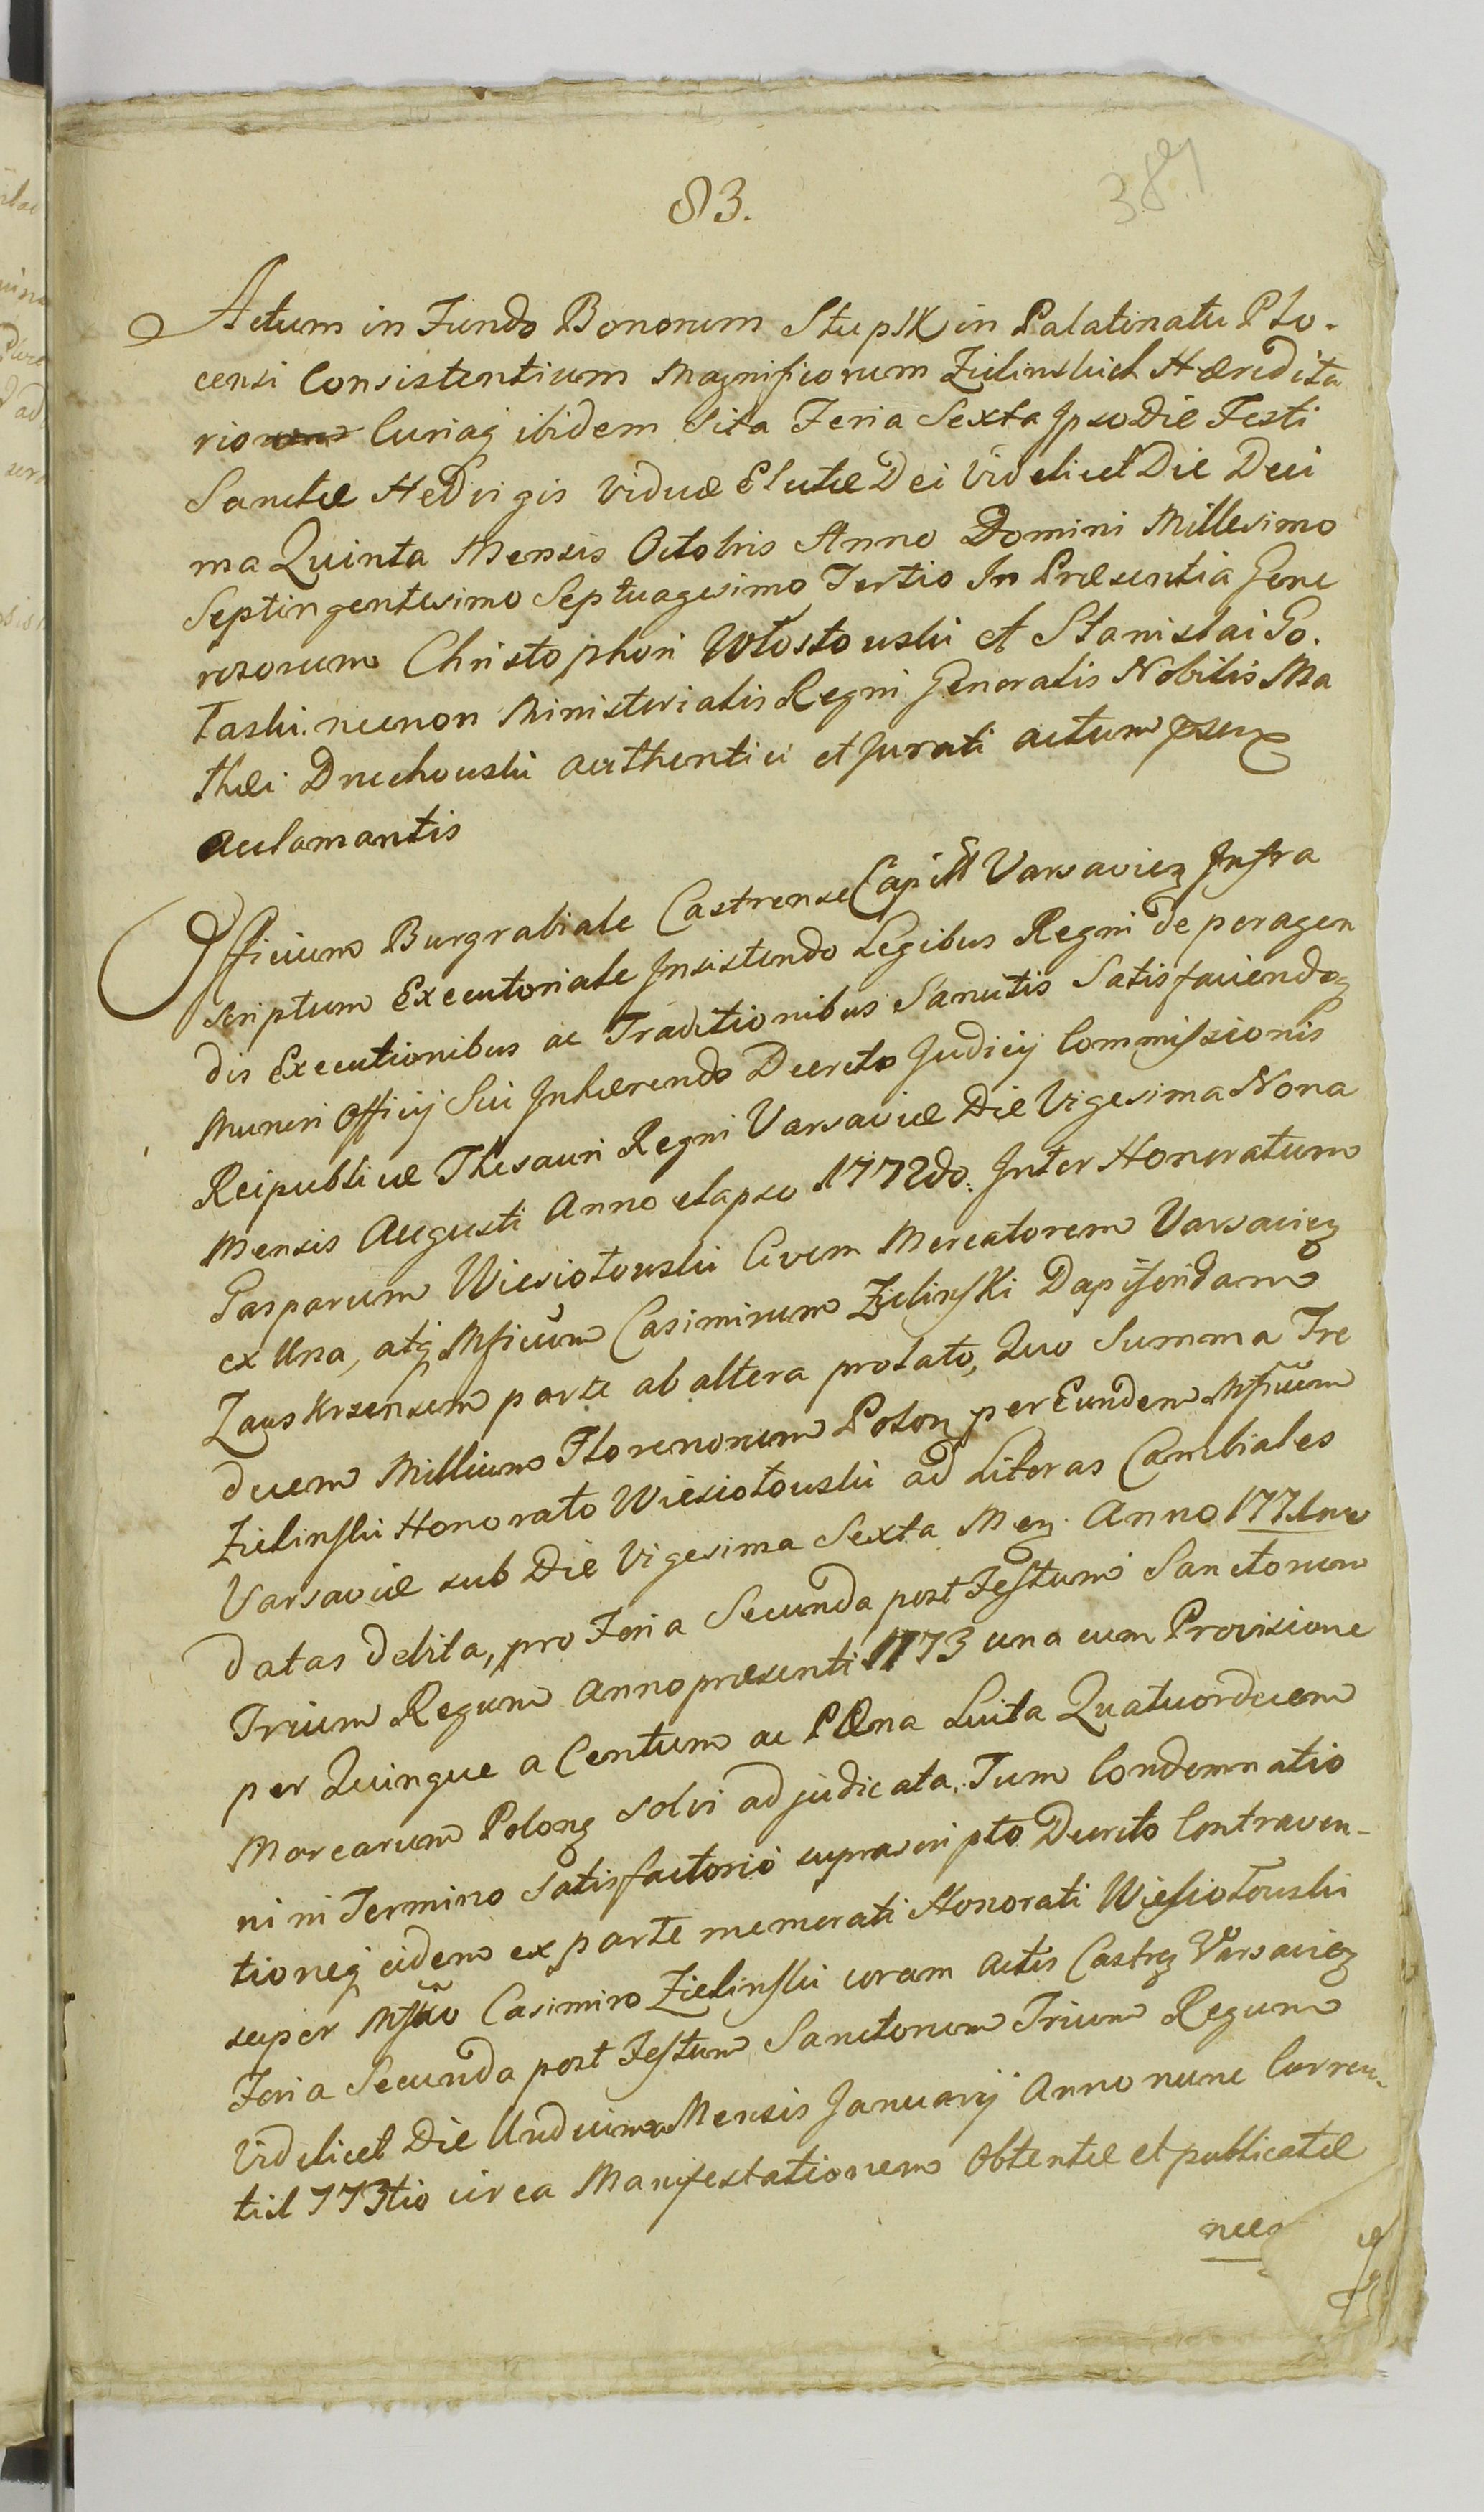 83.
389
Actum in Fundo Bonorum Stupsk in Palatinatu Plo-
censi Consistentium Magnificorum Zielinskich Hæredita
rio Curiaq ibidem Sita Feria Sexta Ipso Die Festi
Sanctæ Hedvigis Viduæ Electæ Dei Videlicet Die Deci
ma Quinta Mensis Octobris Anno Domini Millesimo
Septingentesimo Septuagesimo Tertio In Præsentia Gene
rosorum Christophori Włostowski et Stanislai Go.
łaski. necnon Ministerialis Regni Generalis Nobilis Ma
thæi Druchowski authentici et Jurati actum
aclamantis
Officium Burgrabiale Castrense Capitt Varsavien Infra
scriptum Executoriale Insistendo Legibus Regni de peragen
dis Executionibus ac Traditionibus Sancitis Satisfaciendoq
Muneri Officij Sui Inhærendo Decreto Judicij Commissionis
Reipublicæ Thesauri Regni Varsaviæ Die Vigesima Nona
Mensis Augusti Anno elapso 1772do. Inter Honoratum
Gasparum Wiesiołowski Civem Mercatorem Varsavien
ex Una, atq Mficum Casimirum Zielinski Dapiferidam
Zauskrzensem parte ab altera prolato, Quo Summa Tre
decem Millium Florenorum Polon per Eundem Mficum
Zielinski Honorato Wiesiołowski ad Literas Cambiales
Varsaviæ sub Die Vigesima Sexta Men. Anno 1771mo
datas debita, pro Feria Secunda post Festum Sanctorum
Trium Regum Anno præsenti 1773 una cum Provisione
per Quinque a Centum ac Pæna Luita Quatuordecem
Marcarum Polon solvi adjudicata. Tum Condemnatio
ni in Termino Satisfactorio suprascripto Decreto Contraven-
tioneq eidem ex parte memorati Honorati Wiesiołowski
super Mfico Casimiro Zielinski coram actis Castren Varsavien
Feria Secunda post Festum Sanctorum Trium Regum
Videlicet Die Undecima Mensis Januarij Anno nunc Curren-
ti 1773tio circa Manifestationem Obtentæ et publicatæ
nec